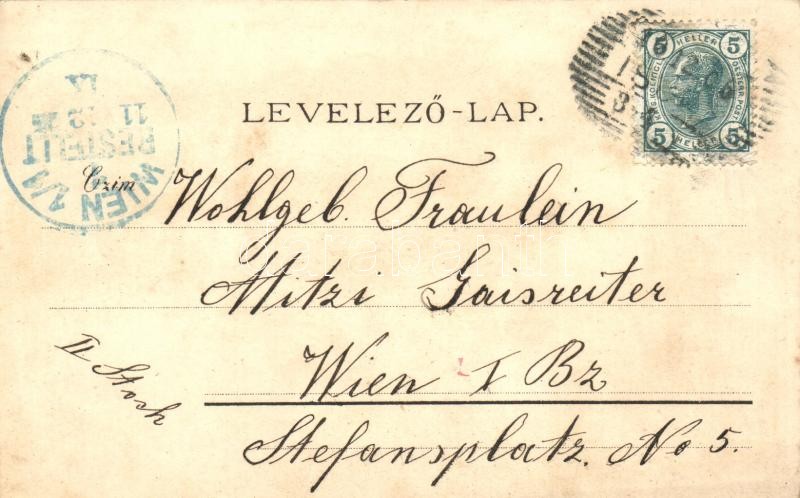 5 HELLER 5
5 HELLER 5
LEVELEZŐ-LAP.
WIEN 1/1
BESTELLT
Czim
Wohlgeb. Fraulein
Mitzi Gaisreiter
Wien I Bz
II Stock
Stefansplatz. No 5.